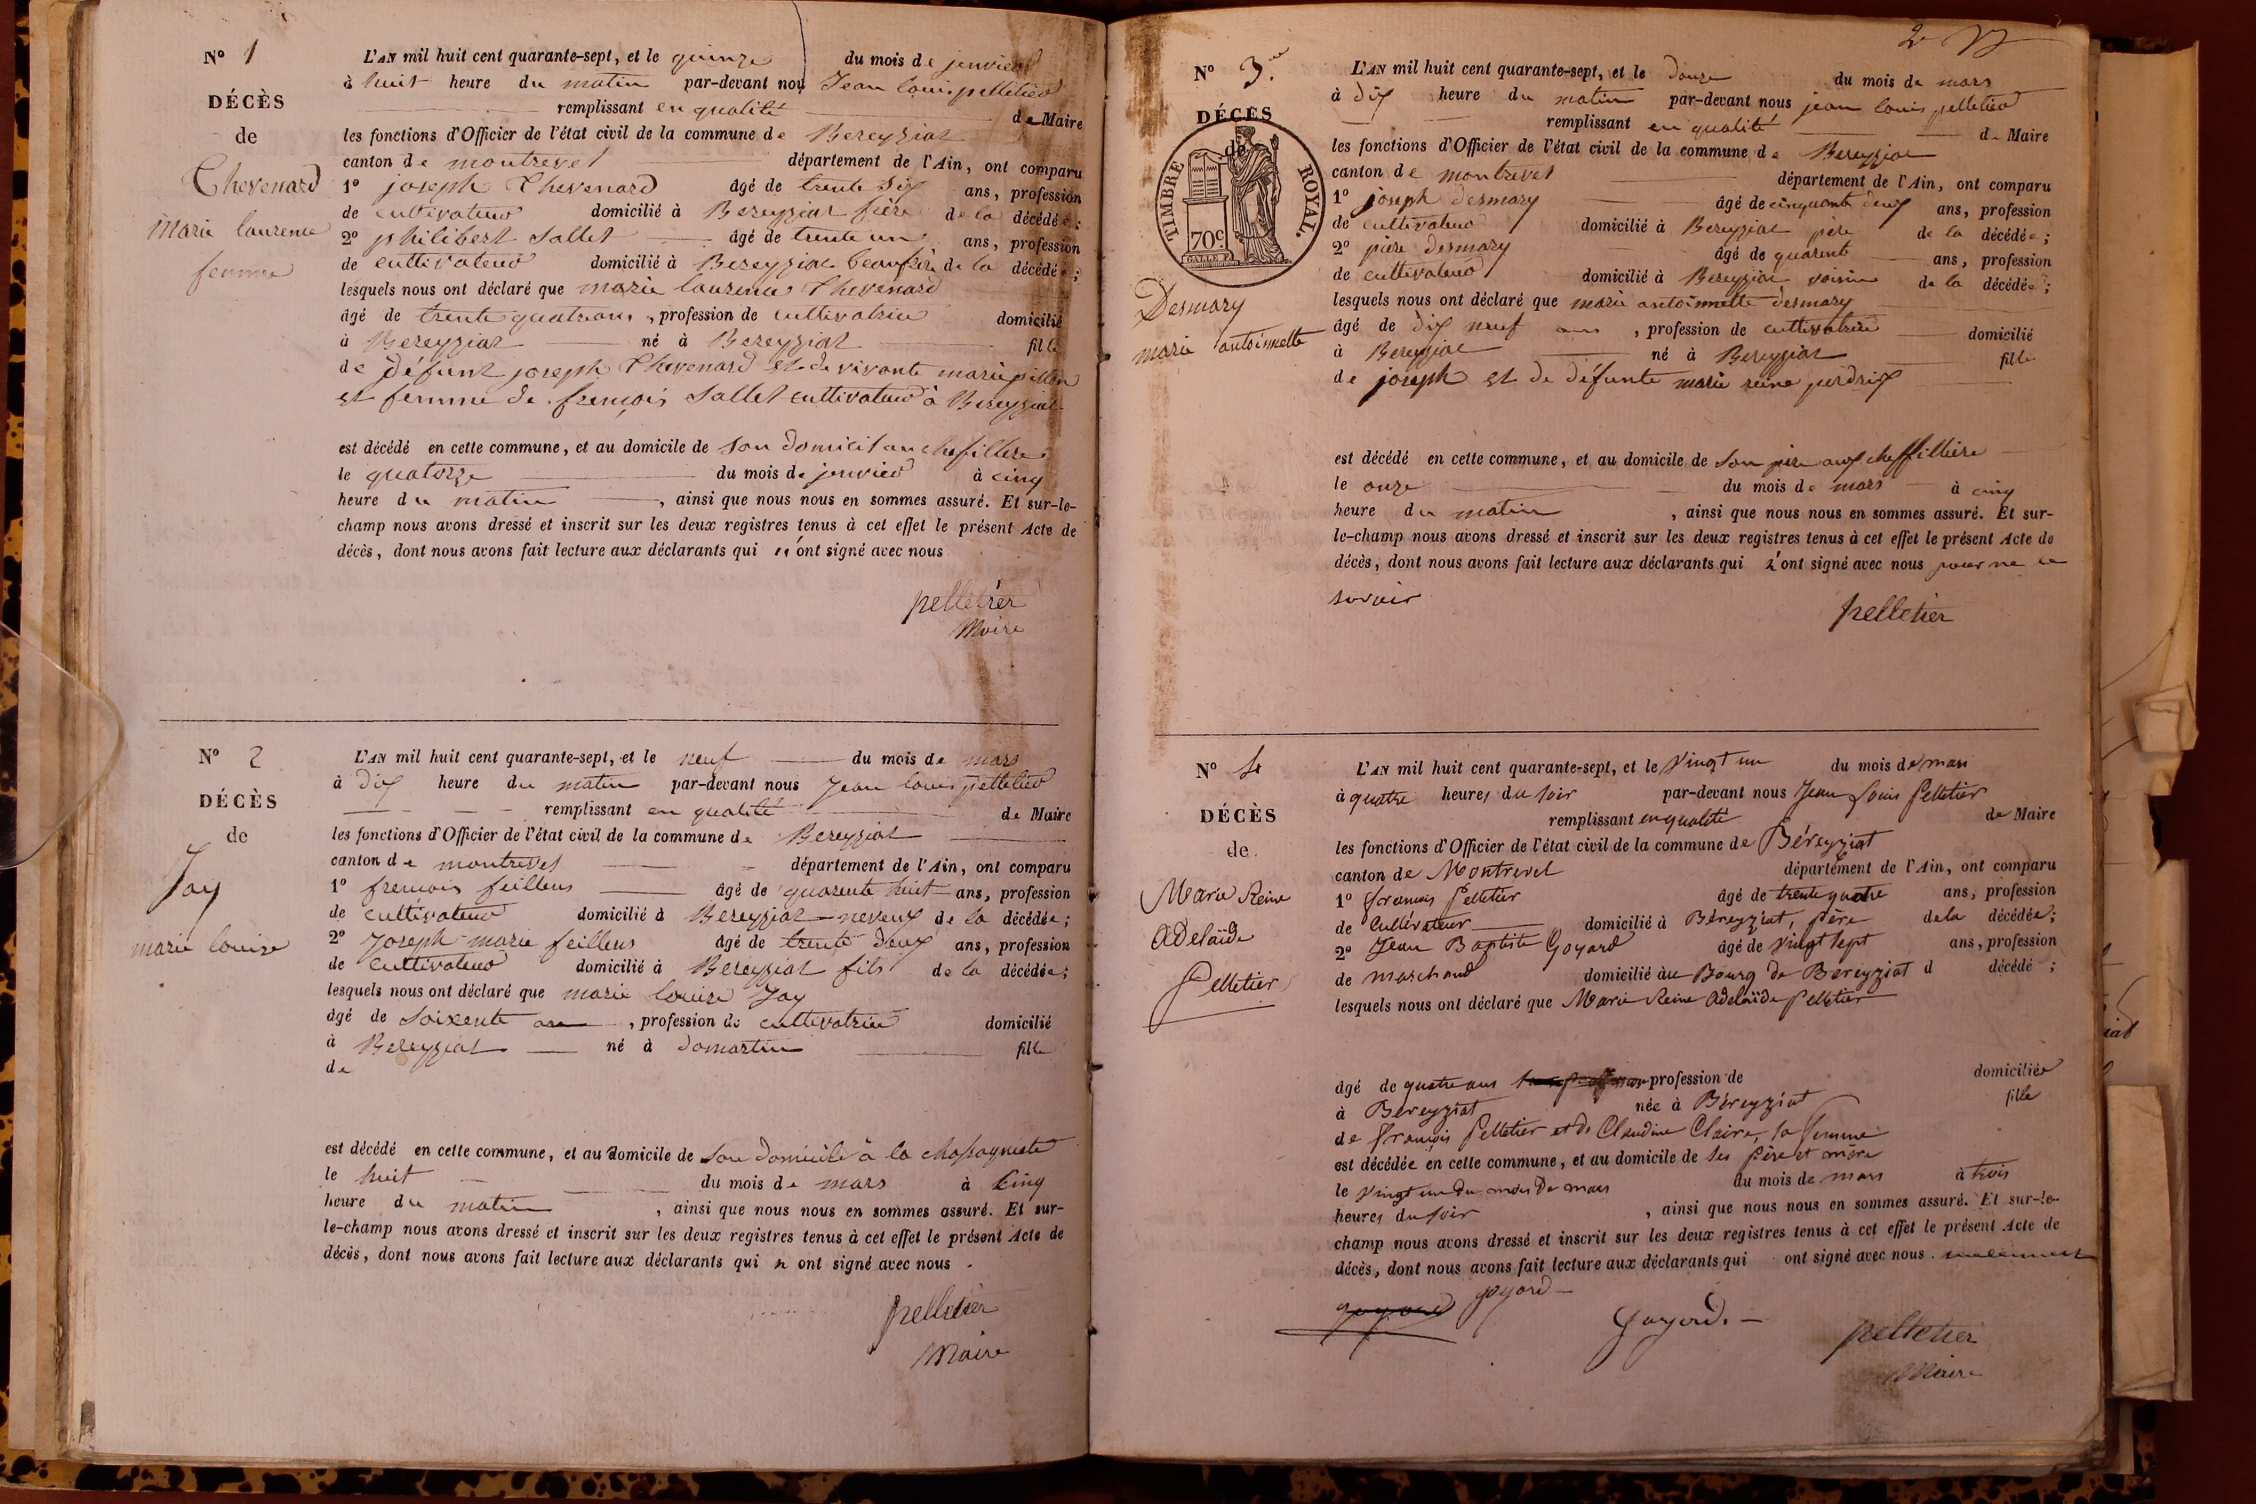 Nº 1
DÉCÈS
de
Chevenard
marie laurence
femme
L'AN mil huit cent quarante-sept, et le quinze du mois de jenvier
à huit heure du matin par-devant nous Jean louis pelletier
remplissant en qualité de Maire
les fonctions d'Officier de l'état civil de la commune de Bereyziat
canton de montrevel département de l'Ain, ont comparu
1º joseph Chevenard âgé de trente six ans, profession
de cultivateur domicilié à Bereyziat frère de la décédée;
2º philibert Sallet âgé de trente un ans, profession
de cultivateur domicilié à Bereyziat beaufrère de la décédée;
lesquels nous ont déclaré que marie laurence Chevenard
âgé de trente quatre ans, profession de cultivatrice domicilié
à Bereyziat né à Bereyziat fille
de défunt joseph Chevenard et de vivante marie pillon
et femme de françois Sallet cultivateur à Bereyziat
est décédé en cette commune, et au domicile de son domicil au chefillere
le quatorze du mois de jenvier à cinq
heure du matin, ainsi que nous nous en sommes assuré. Et sur-le-
champ nous avons dressé et inscrit sur les deux registres tenus à cet effet le présent Acte de
décès, dont nous avons fait lecture aux déclarants qui n'ont signé avec nous
pelletier
Maire
Nº 2
DÉCÈS
de
Jay
marie louise
L'AN mil huit cent quarante-sept, et le neuf du mois de mars
à dix heure du matin par-devant nous Jean louis pelletier
remplissant en qualité de Maire
les fonctions d'Officier de l'état civil de la commune de Bereyziat
canton de montrevel département de l'Ain, ont comparu
1º frencois feillens âgé de quarente huit ans, profession
de cultivateur domicilié à Bereyziat neveux de la décédée;
2º Joseph marie feillens âgé de trente deux ans, profession
de cultivateur domicilié à Bereyziat fils de la décédée;
lesquels nous ont déclaré que marie louise Jay
âgé de soixente ans, profession de cultivatrice domicilié
à Bereyziat né à domartin fille
de
est décédé en cette commune, et au domicile de son domicile à la chassagnete
le huit du mois de mars à cinq
heure du matin, ainsi que nous nous en sommes assuré. Et sur-
le-champ nous avons dressé et inscrit sur les deux registres tenus à cet effet le présent Acte de
décès, dont nous avons fait lecture aux déclarants qui n ont signé avec nous.
pelletier
Maire
2e
Nº 3.
DÉCÈS
de
TIMBRE ROYAL.
70c
Desmary
marie antoinnette
L'AN mil huit cent quarante-sept, et le douze du mois de mars
à dix heure du matin par-devant nous jean louis pelletier
remplissant en qualité de Maire
les fonctions d'Officier de l'état civil de la commune de Bereyziat
canton de montrevel département de l'Ain, ont comparu
1º joseph desmary âgé de cinquante deux ans, profession
de cultivateur domicilié à Bereyziat père de la décédée;
2º pière desmary âgé de quarente ans, profession
de cultivateur domicilié à Bereyziat voisin de la décédée;
lesquels nous ont déclaré que marie antoinnette desmary
âgé de dix neuf ans, profession de cultivatrice domicilié
à Bereyziat né à Bereyziat fille
de joseph et de défunte marie reine perdrix
est décédé en cette commune, et au domicile de son père aux cheffilliere
le onze du mois de mars à cinq
heure du matin, ainsi que nous nous en sommes assuré. Et sur-
le-champ nous avons dressé et inscrit sur les deux registres tenus à cet effet le présent Acte de
décès, dont nous avons fait lecture aux déclarants qui n'ont signé avec nous pour ne le
savoir
pelletier
Nº 4
DÉCÈS
de
Marie Reine
Adelaïde
Pelletier
L'AN mil huit cent quarante-sept, et le vingt un du mois de mars
à quatre heures du soir par-devant nous Jean Louis Pelletier
remplissant en qualité de Maire
les fonctions d'Officier de l'état civil de la commune de Béreyziat
canton de Montrevel département de l'Ain, ont comparu
1º françois Pelletier âgé de trente quatre ans, profession
de Cultivateur domicilié à Béreyziat, père de la décédée;
2º Jean Baptiste Goyard âgé de vingt sept ans, profession
de marchand domicilié au Bourg de Bereyziat d décédé;
lesquels nous ont déclaré que Marie Reine Adelaïde Pelletier
âgé de quatre ans profession de domiciliée
à Béreyziat née à Béreyziat fille
de françois Pelletier et de Claudine Claire, sa femme
est décédée en cette commune, et au domicile de ses père et mère
le vingt un du mois de mars du mois de mars à trois
heures du soir, ainsi que nous nous en sommes assuré. Et sur-le-
champ nous avons dressé et inscrit sur les deux registres tenus à cet effet le présent Acte de
décès, dont nous avons fait lecture aux déclarants qui ont signé avec nous. seulement
goyard
goyard
Goyard.
pelletier
Maire